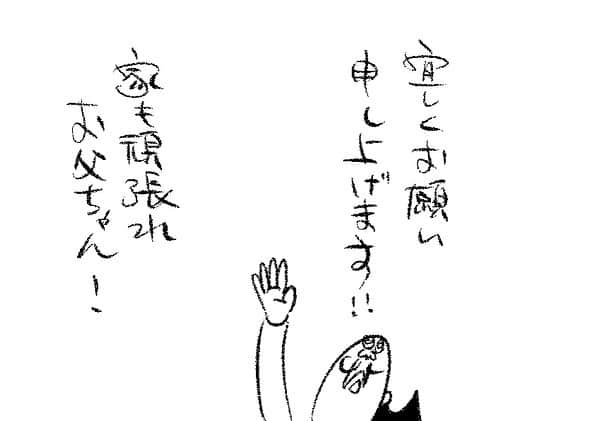 宜しくお願い
申し上げます!!
家も頑張れ
お父ちゃん!